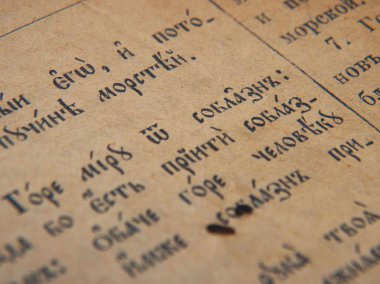 є҆гѡ̀, и҆ пото-
пꙋчи́нѣ морстѣ́й.
Го́ре мі́рꙋ ѿ собла̑знъ:
бо є҆́сть прїитѝ собла́з-
ѻ҆ба́че го́ре человѣ́кꙋ
и҆́мже собла́знъ при-
твоѧ̀
морской.
7. Го
новъ